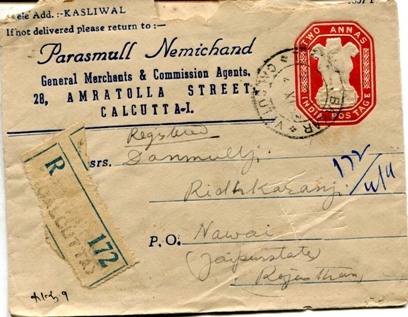 ele Add. :-KASLIWAL
If not delivered please return to:—
Parasmull Nemichand
General Merchants & Commission Agents.
28, AMRATOLLA STREET
CALCUTTA-I.
TWO ANNAS
INDIA POSTAGE
Registered
srs. Danmullji.
Ridhkaranji.
172
P. O. Nawai
(Jaipur state)
Rajasthan
R
CALCUTTA
172